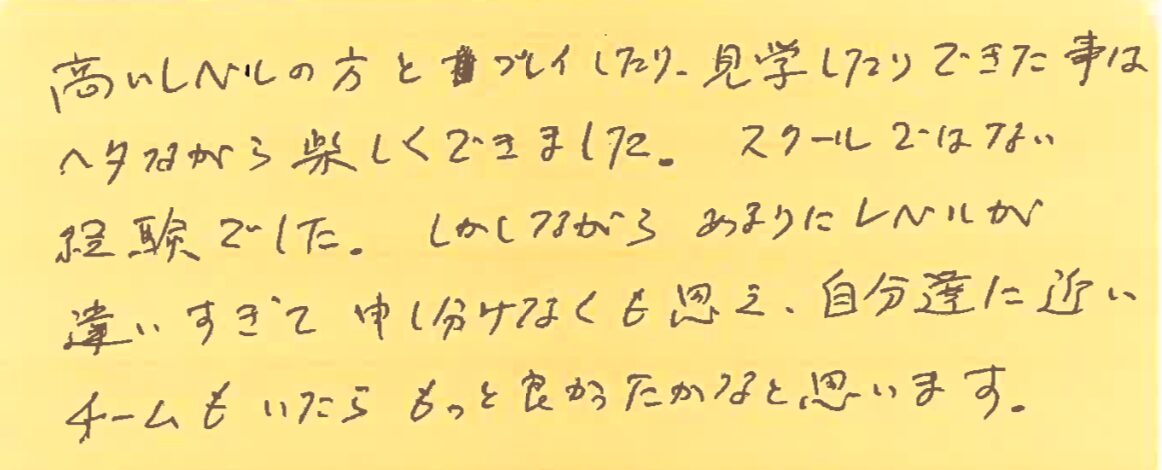 高いレベルの方とプレイしたり、見学したりできた事は
ヘタながら楽しくできました。 スクールではない
経験でした。 しかしながら あまりにレベルが
違いすぎて 申し分けなくも思え、自分達に近い
チームも いたら もっと良かったかなと思います。